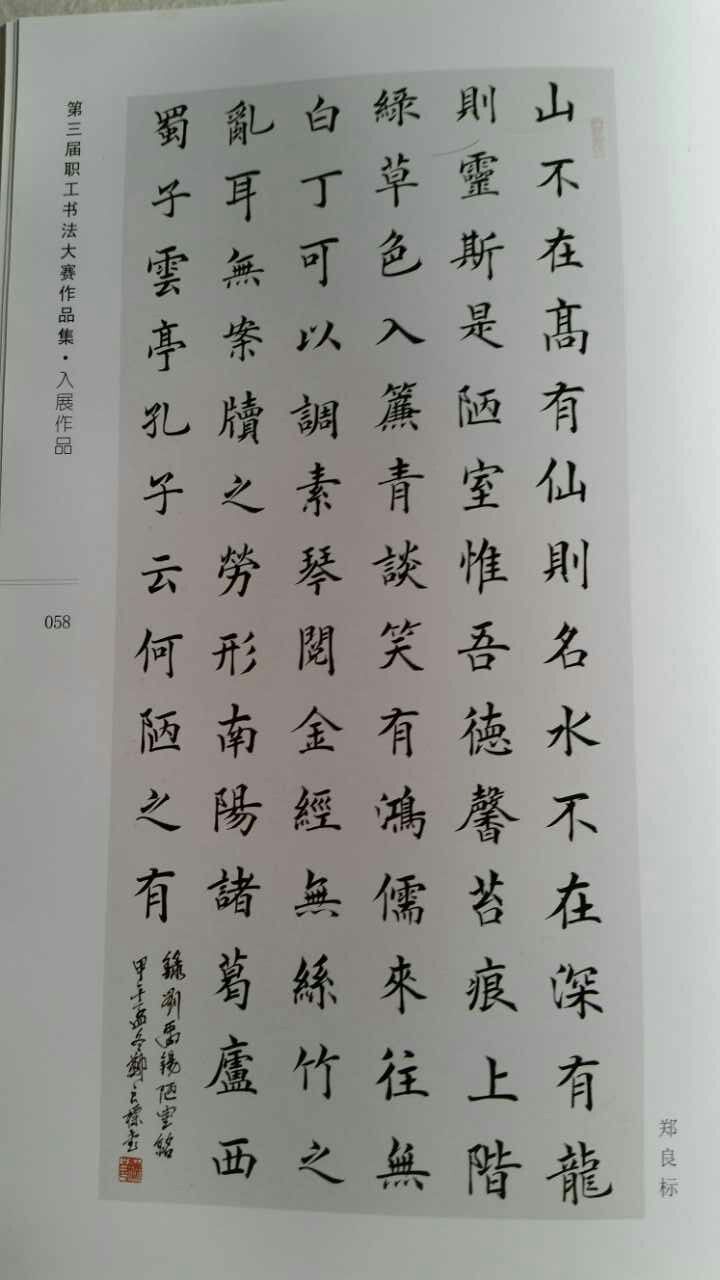 山不在髙有仙則名水不在深有龍
則靈斯是陋室惟吾德馨苔痕上階
綠草色入簾青談笑有鴻儒來往無
白丁可以調素琴閱金經無絲竹之
亂耳無案牘之勞形南陽諸葛廬西
蜀子雲亭孔子云何陋之有
錄劉禹錫陋室銘
甲午孟冬鄭良標書
郑良标
第三届职工书法大赛作品集·入展作品
058